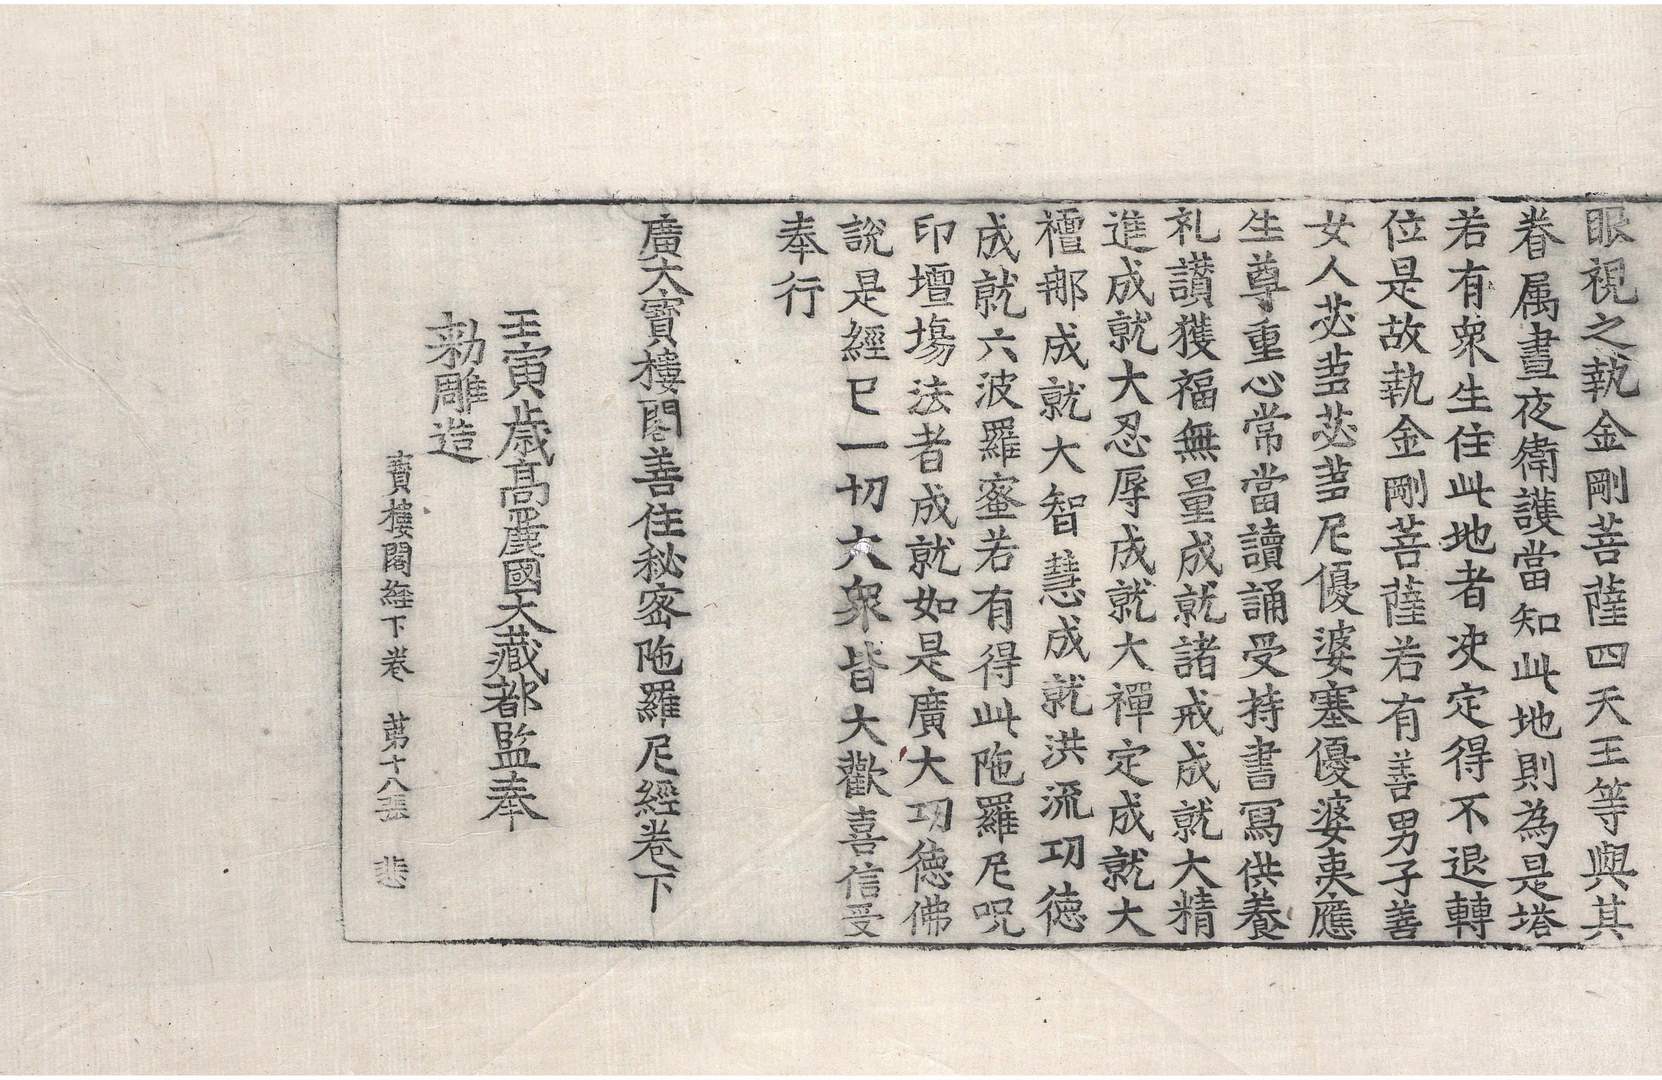 眼視之執金剛菩薩四天王等與其
眷属晝夜衛護當知此地則為是塔
若有衆生住此地者决定得不退轉
位是故執金剛菩薩若有善男子善
女人苾蒭苾蒭尼優婆塞優婆夷應
生尊重心常當讀誦受持書寫供養
礼讃獲福無量成就諸戒成就大精
進成就大忍辱成就大禪定成就大
檀那成就大智慧成就洪流功德
成就六波羅蜜若有得此陁羅尼呪
印壇場法者成就如是廣大功德佛
說是經已一切大衆皆大歡喜信受
奉行
廣大寶樓閣善住秘密陁羅尼經卷下
壬寅歳高麗國大藏都監奉
勑雕造
寶樓閣経下卷 苐十八張 悲